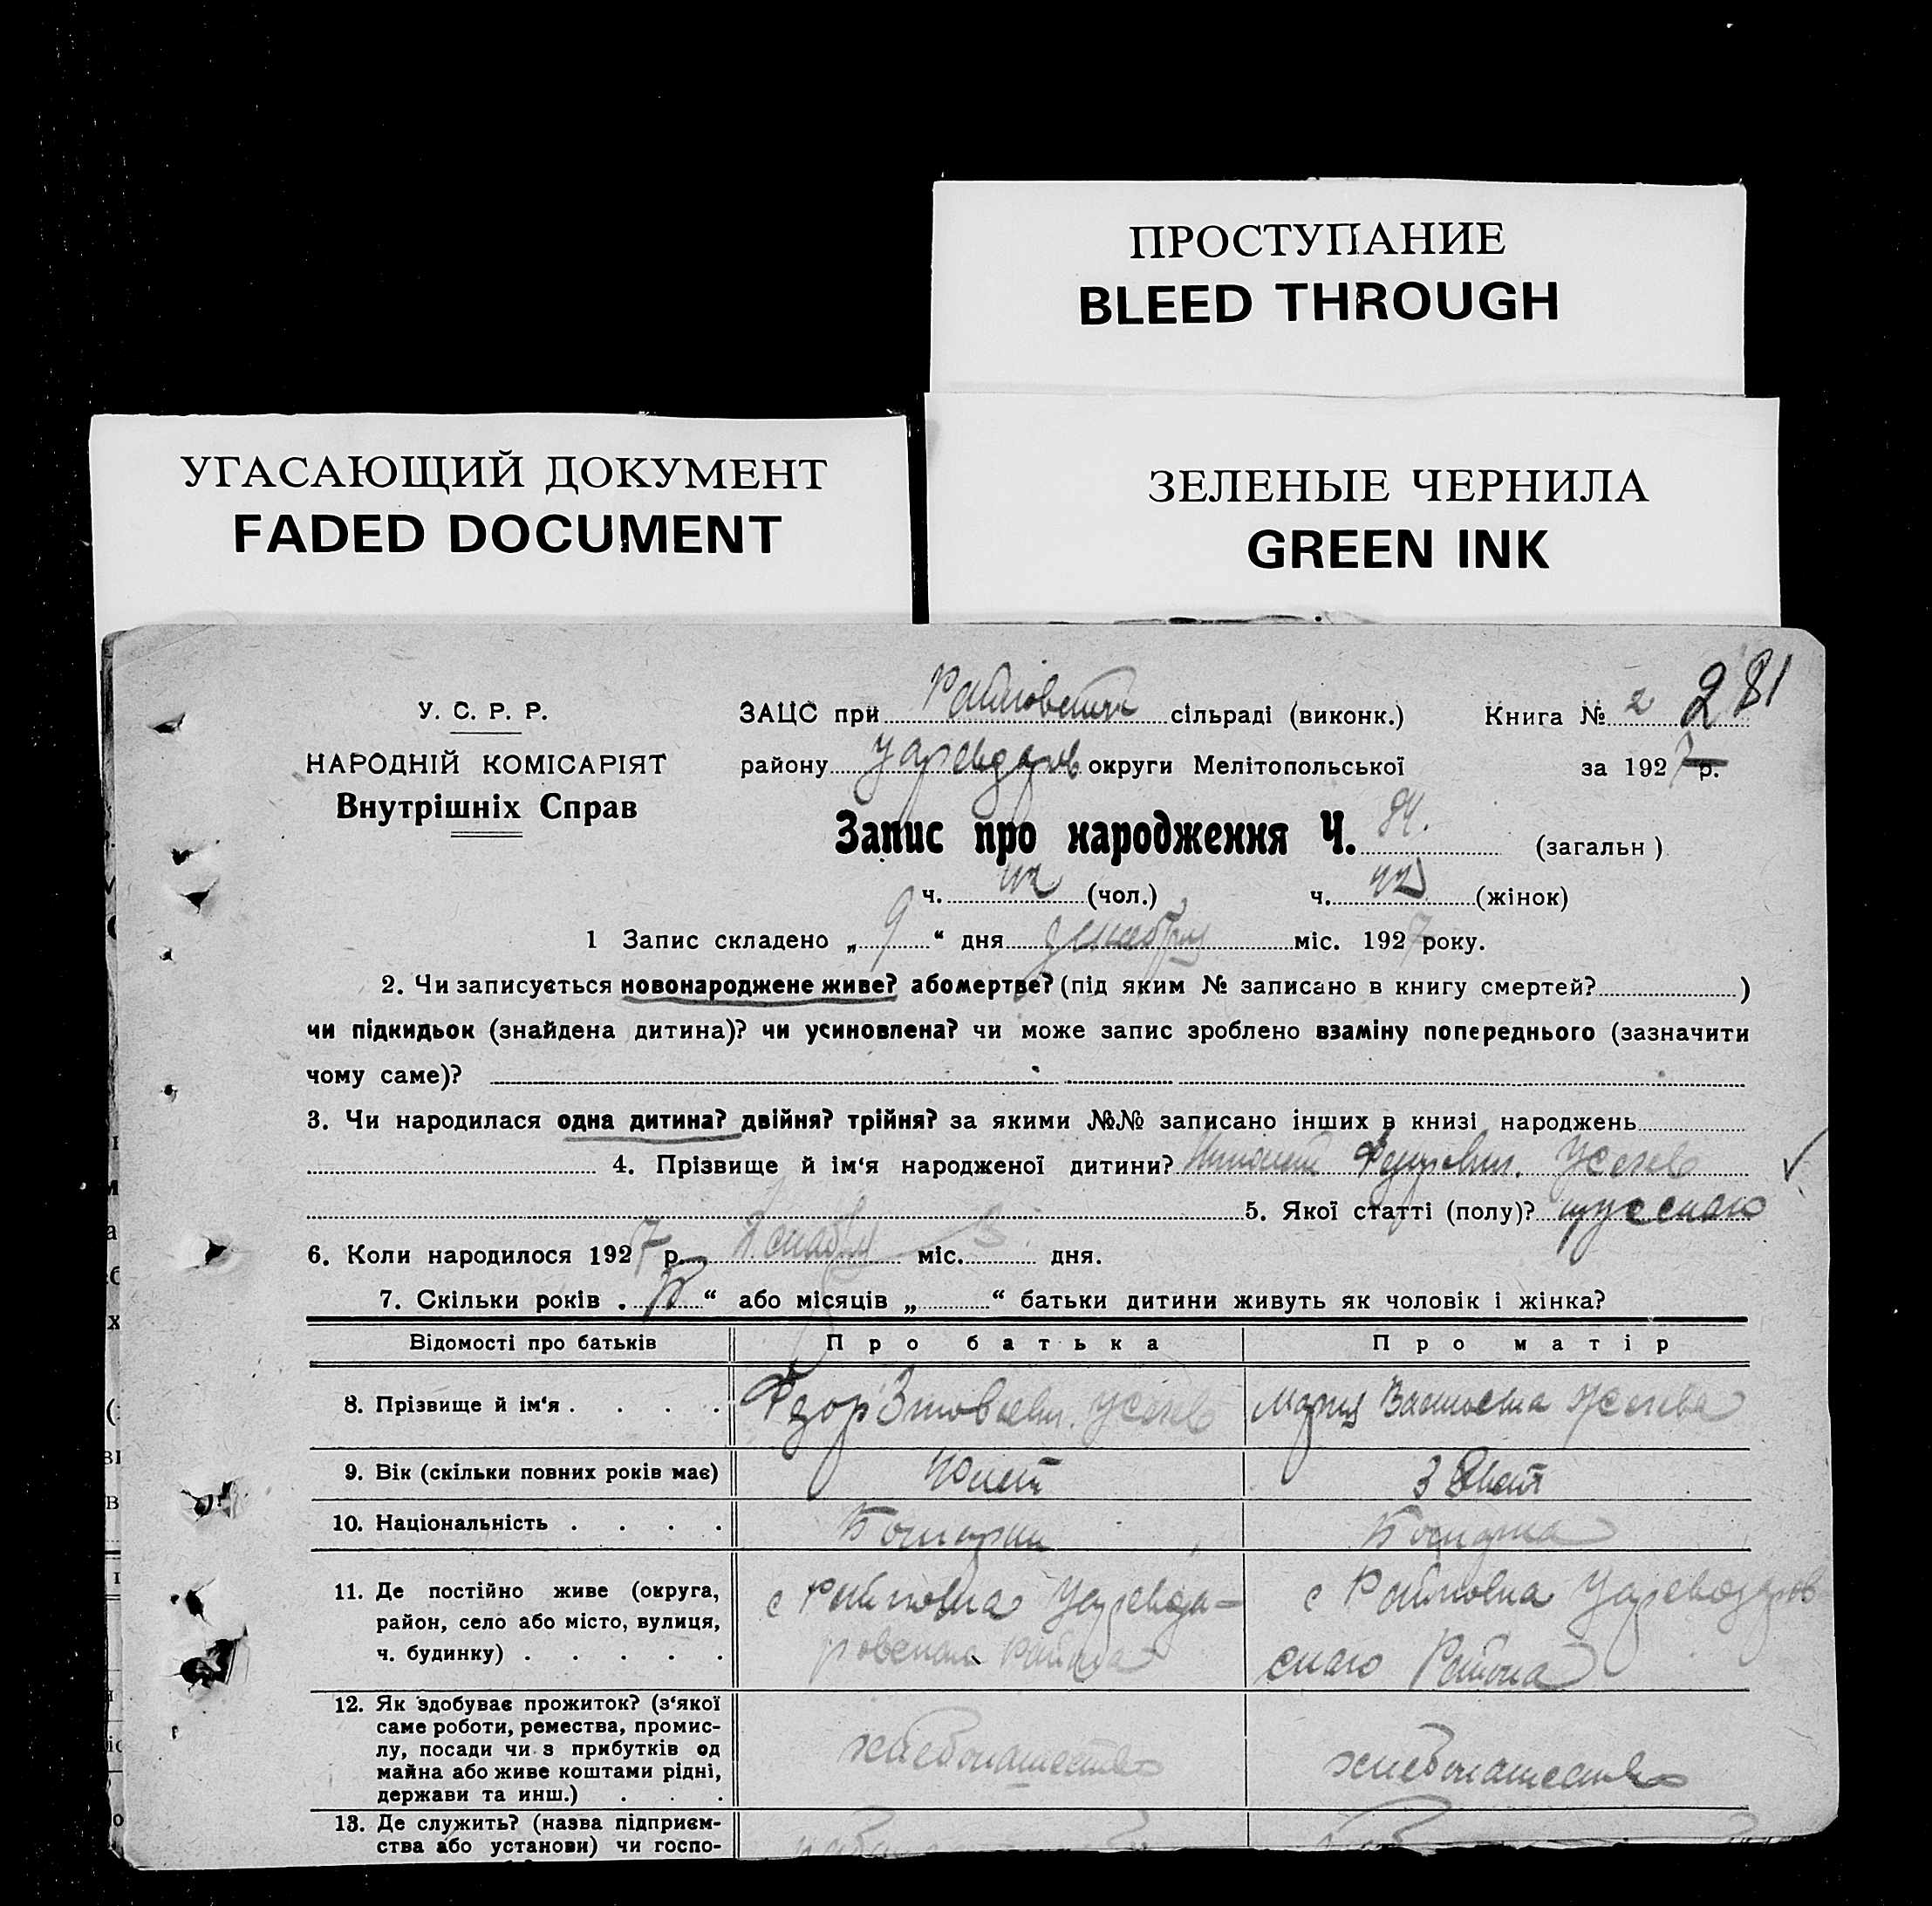 ПРОСТУПАНИЕ
BLEED THROUGH
УГАСАЮЩИЙ ДОКУМЕНТ
FADED DOCUMENT
ЗЕЛЕНЫЕ ЧЕРНИЛА
GREEN INK
281
У. С. Р. Р.
ЗАЦС при сільраді (виконк.) Книга № 2
НАРОДНІЙ КОМІСАРІЯТ
району округи Мелітопольської за 1927 р.
Внутрішніх Справ
Запис про народження Ч. 84. (загальн)
ч. 42 (чол.) ч. 42 (жінок)
1 Запис складено „ 9 “ дня декабря міс. 1927 року.
2. Чи записується новонароджене живе? або мертве? (під яким № записано в книгу смертей? )
чи підкидьок (знайдена дитина)? чи усиновлена? чи може запис зроблено взаміну попереднього (зазначити
чому саме)?
3. Чи народилася одна дитина? двійня? трійня? за якими №№ записано інших в книзі народжень
4. Прізвище й ім‘я народженої дитини?
5. Якої статті (полу)? мужского
6. Коли народилося 1927 р. Декабря міс. 3 дня.
7. Скільки років . “ або місяців „ “ батьки дитини живуть як чоловік і жінка?
Відомості про батьків Про батька Про матір
8. Прізвище й ім‘я . . . . Мария Васильевна
9. Вік (скільки повних років має) 40 лет 38 лет
10. Національність . . . .
11. Де постійно живе (округа,
район, село або місто, вулиця,
ч. будинку) . . . . . ровского района ского Района
12. Як здобуває прожиток? (з‘якої
саме роботи, ремества, промис-
лу, посади чи з прибутків од
майна або живе коштами рідні,
держави та инш.) . . . хлебопашество хлебопашество
13. Де служить? (назва підприєм-
ства або установи) чи госпо-